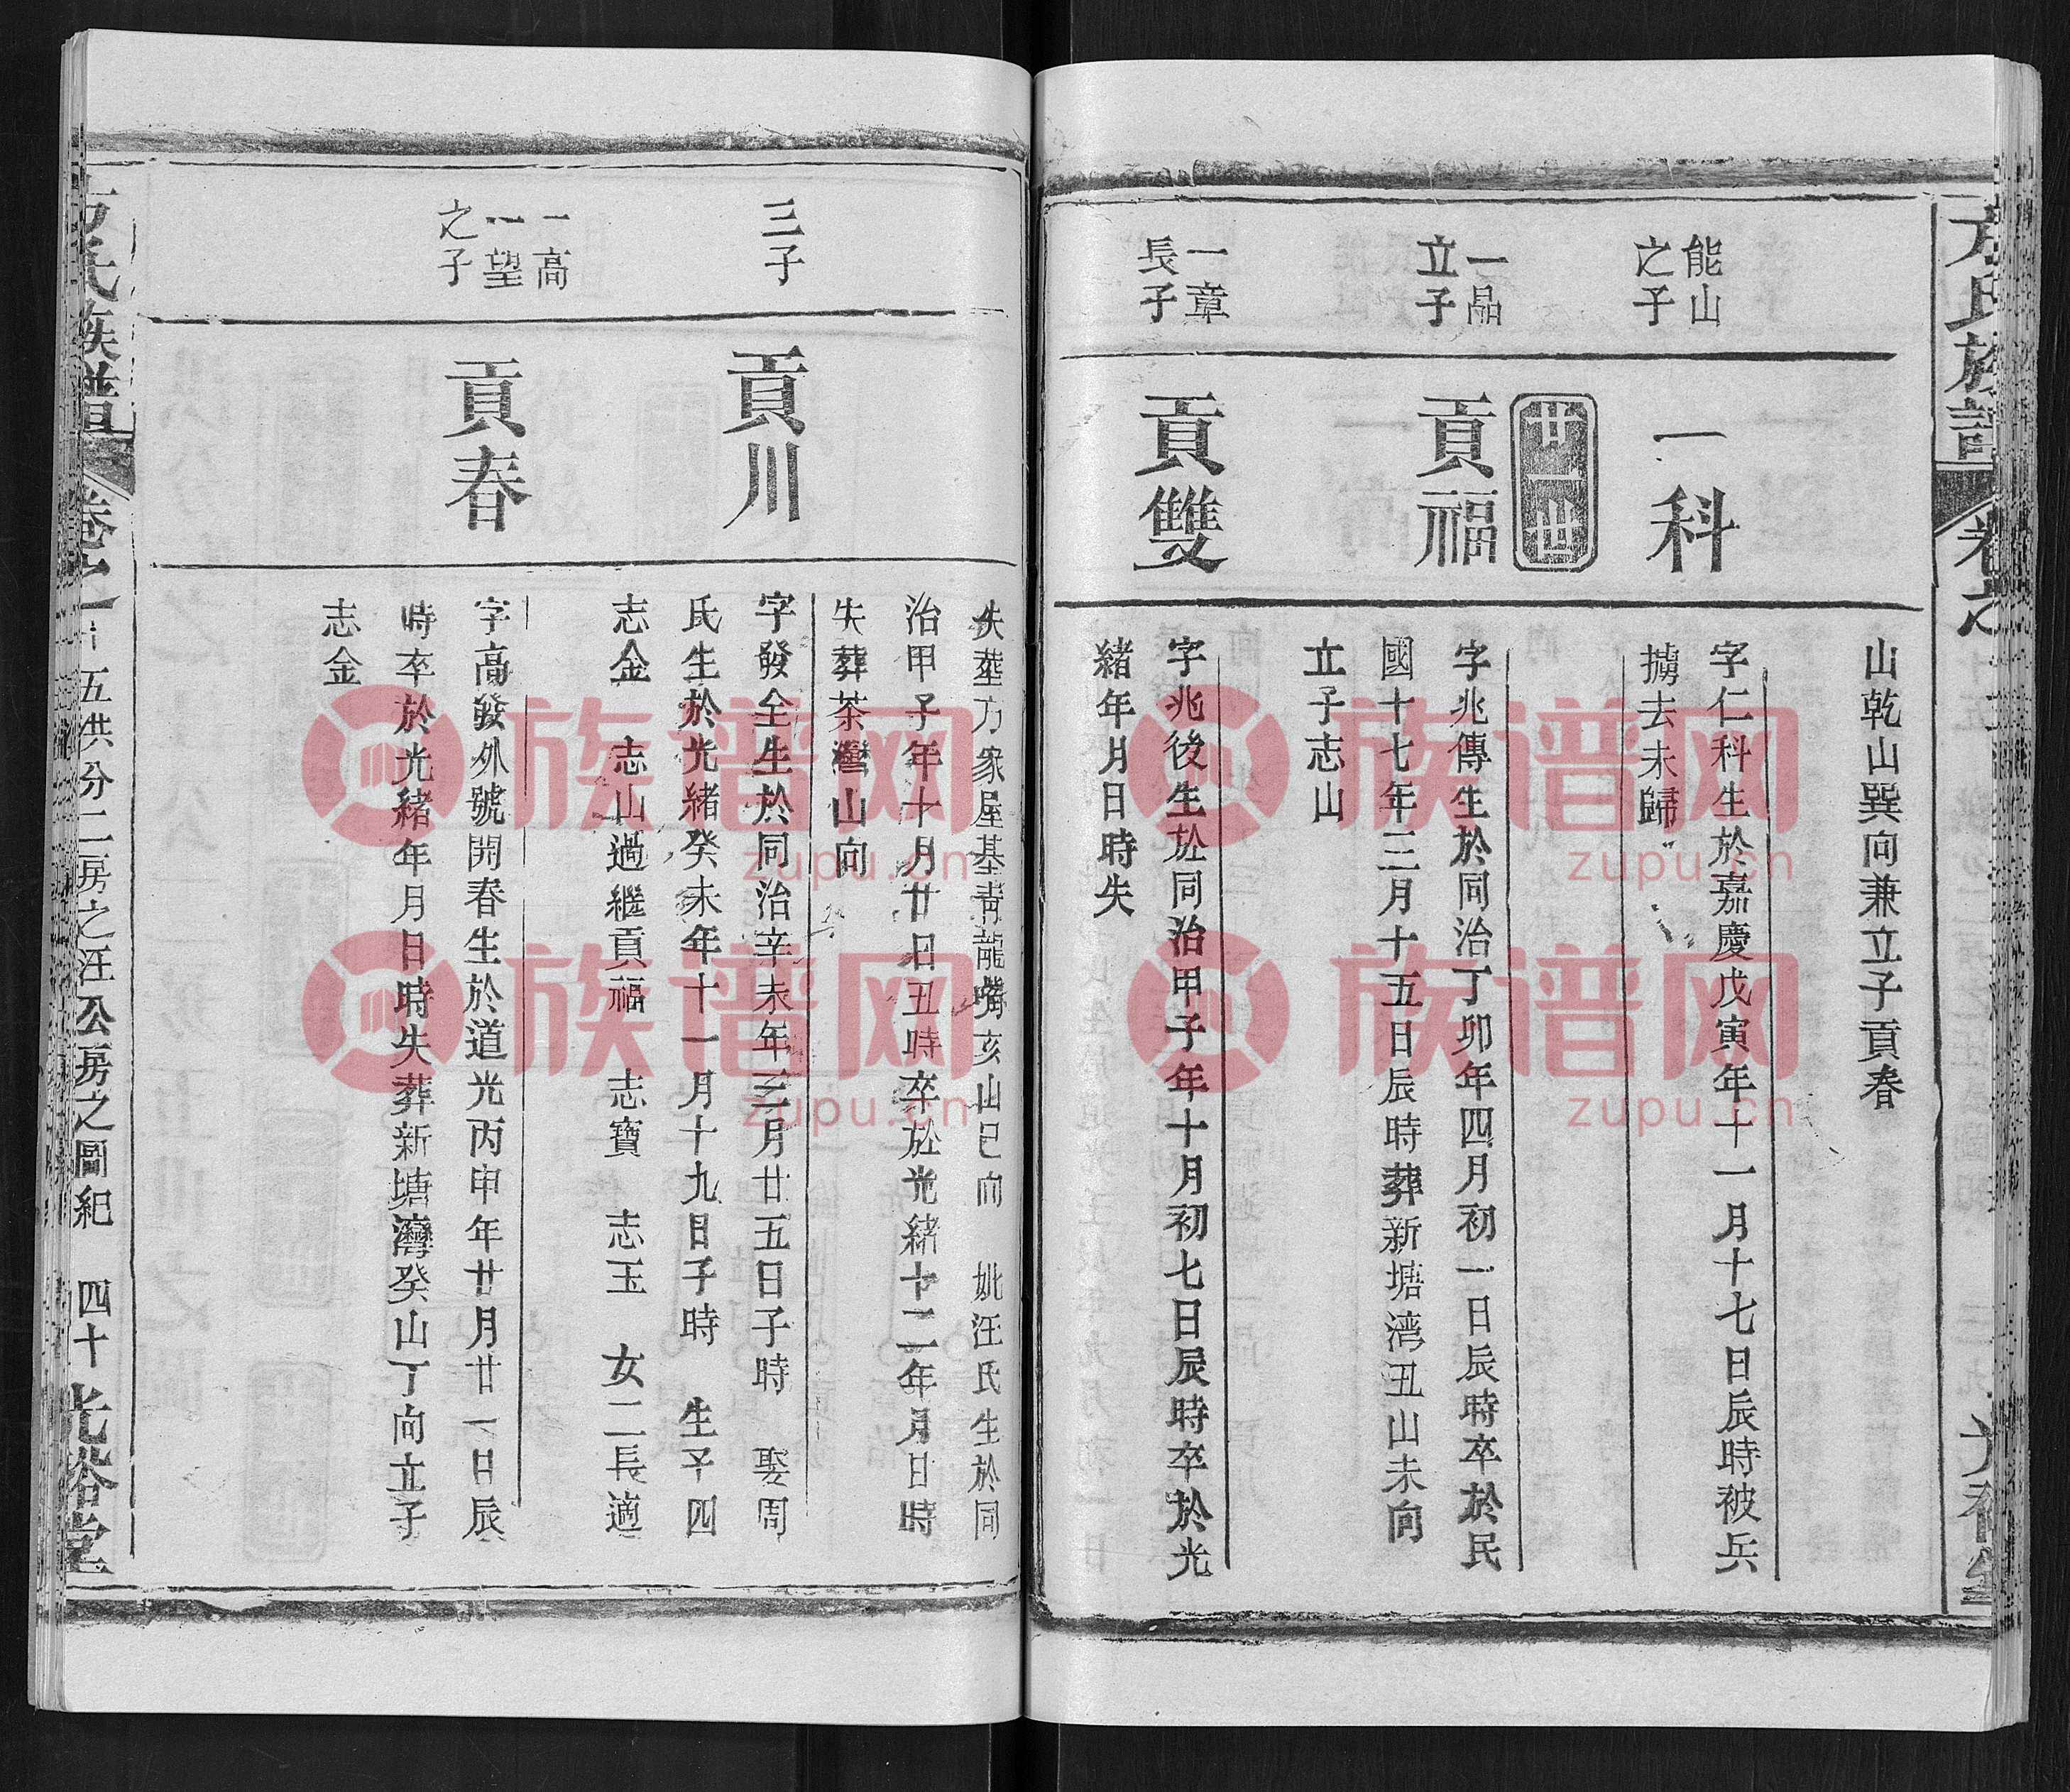 方氏族譜
山乾山巽向兼立子貢春
能山
之子
一科
字仁科生於嘉慶戊寅年十一月十七日辰時被兵
擄去未歸
廿一世
一品
立子
貢福
字兆傳生於同治丁卯年四月初一日辰時卒於民
國十七年三月十五日辰時葬新塘湾丑山未向
立子志山
一章
長子
貢雙
字兆後生於同治甲子年十月初七日辰時卒於光
緒年月日時失
失葬方家屋基青龍嘴亥山巳向 妣汪氏生於同
治甲子年十月廿日丑時卒於光緒十二年月日時
失葬茶灣山向
三子
貢川
字發全生於同治辛未年三月廿五日子時 娶周
氏生於光緒癸未年十一月十九日子時 生子四
志金 志山過繼貢福 志寶 志玉 女二長適
一高
一望
之子
貢春
字高發外號開春生於道光丙申年廿月廿一日辰
時卒於光緒年月日時失葬新塘灣癸山丁向立子
志金
方氏族譜
五洪分二房之汪公房之圖紀 四十
光裕堂
族谱网
zupu.cn
族谱网
zupu.cn
族谱网
zupu.cn
族谱网
zupu.cn